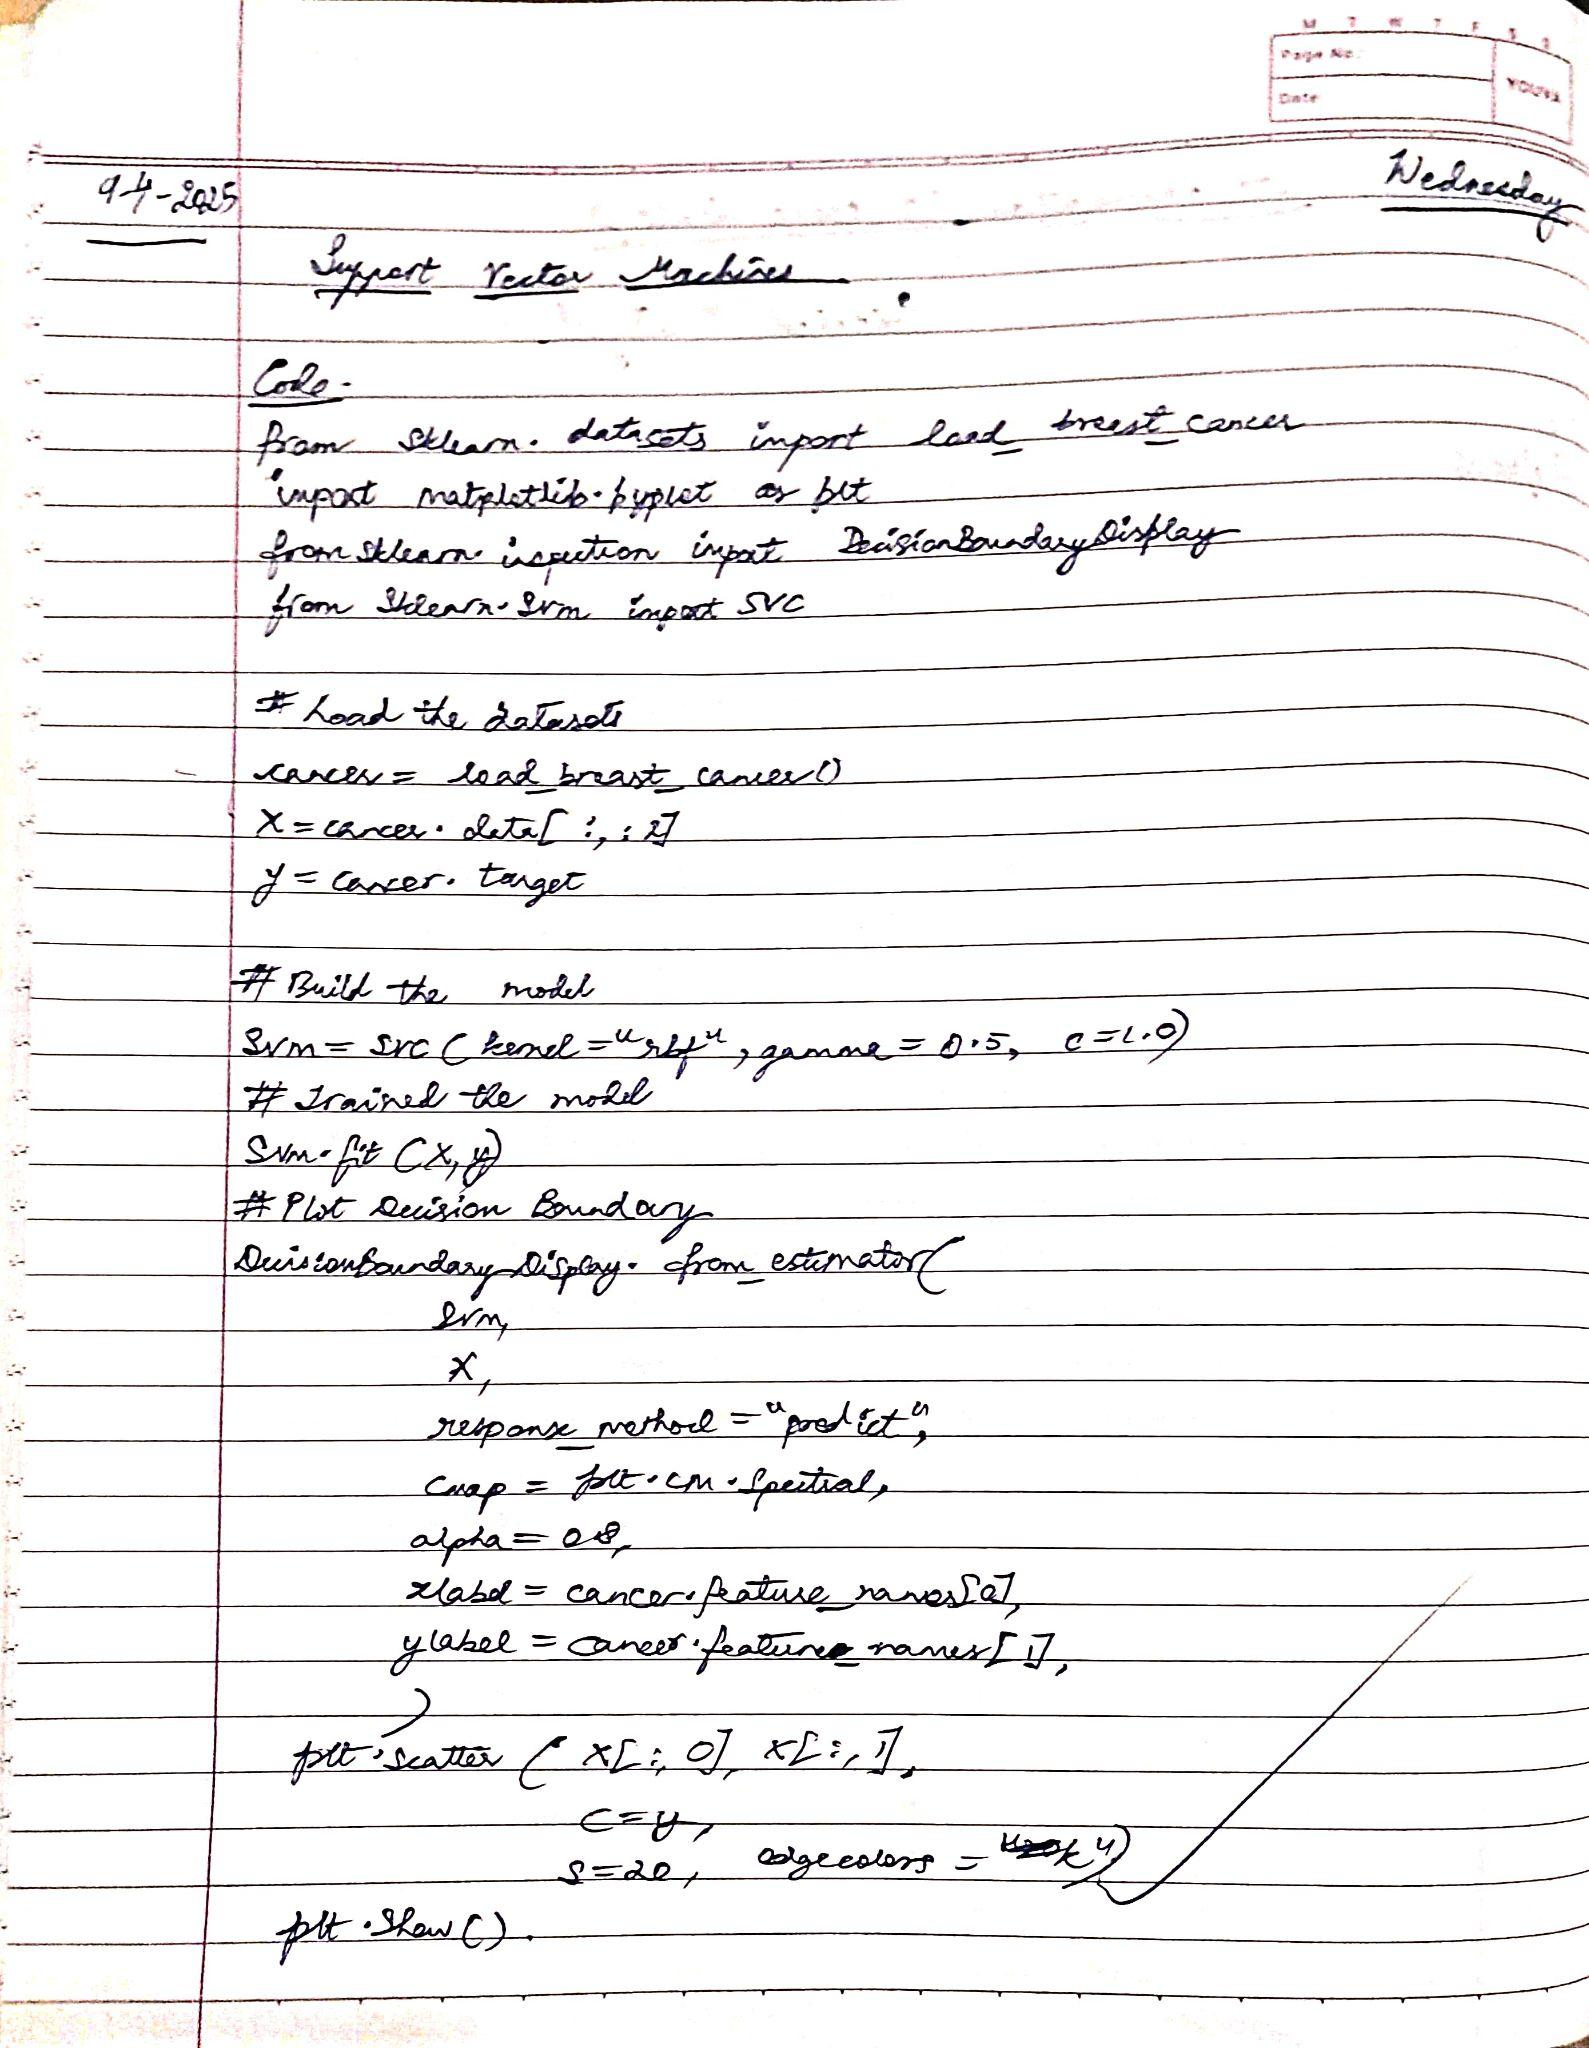 M T W T F S S
Page No.:
Date:
YOUVA
9-4-2025
Wednesday
Support Vector Machines
Code-
from sklearn. datasets import load_breast_cancer
import matplotlib.pyplot as plt
from sklearn. inspection import DecisionBoundaryDisplay
from sklearn.svm import SVC
# Load the datasets
cancer = load_breast_cancer()
X = cancer. data[ :, : 2]
y = cancer. target
# Build the model
Svm = SVC ( kernel = "rbf", gamma = 0.5, C = 1.0)
# Trained the model
Svm.fit (X, y)
# Plot Decision Boundary
DecisionBoundaryDisplay. from_estimator(
svm,
X,
response_method = "predict",
cmap = plt.cm.Spectral,
alpha = 0.8,
xlabel = cancer.feature_names[0],
ylabel = cancer.feature_names[1],
)
plt.scatter ( X[:, 0], X[:, 1],
c=y,
s=20, edgecolors = "k")
plt.show().